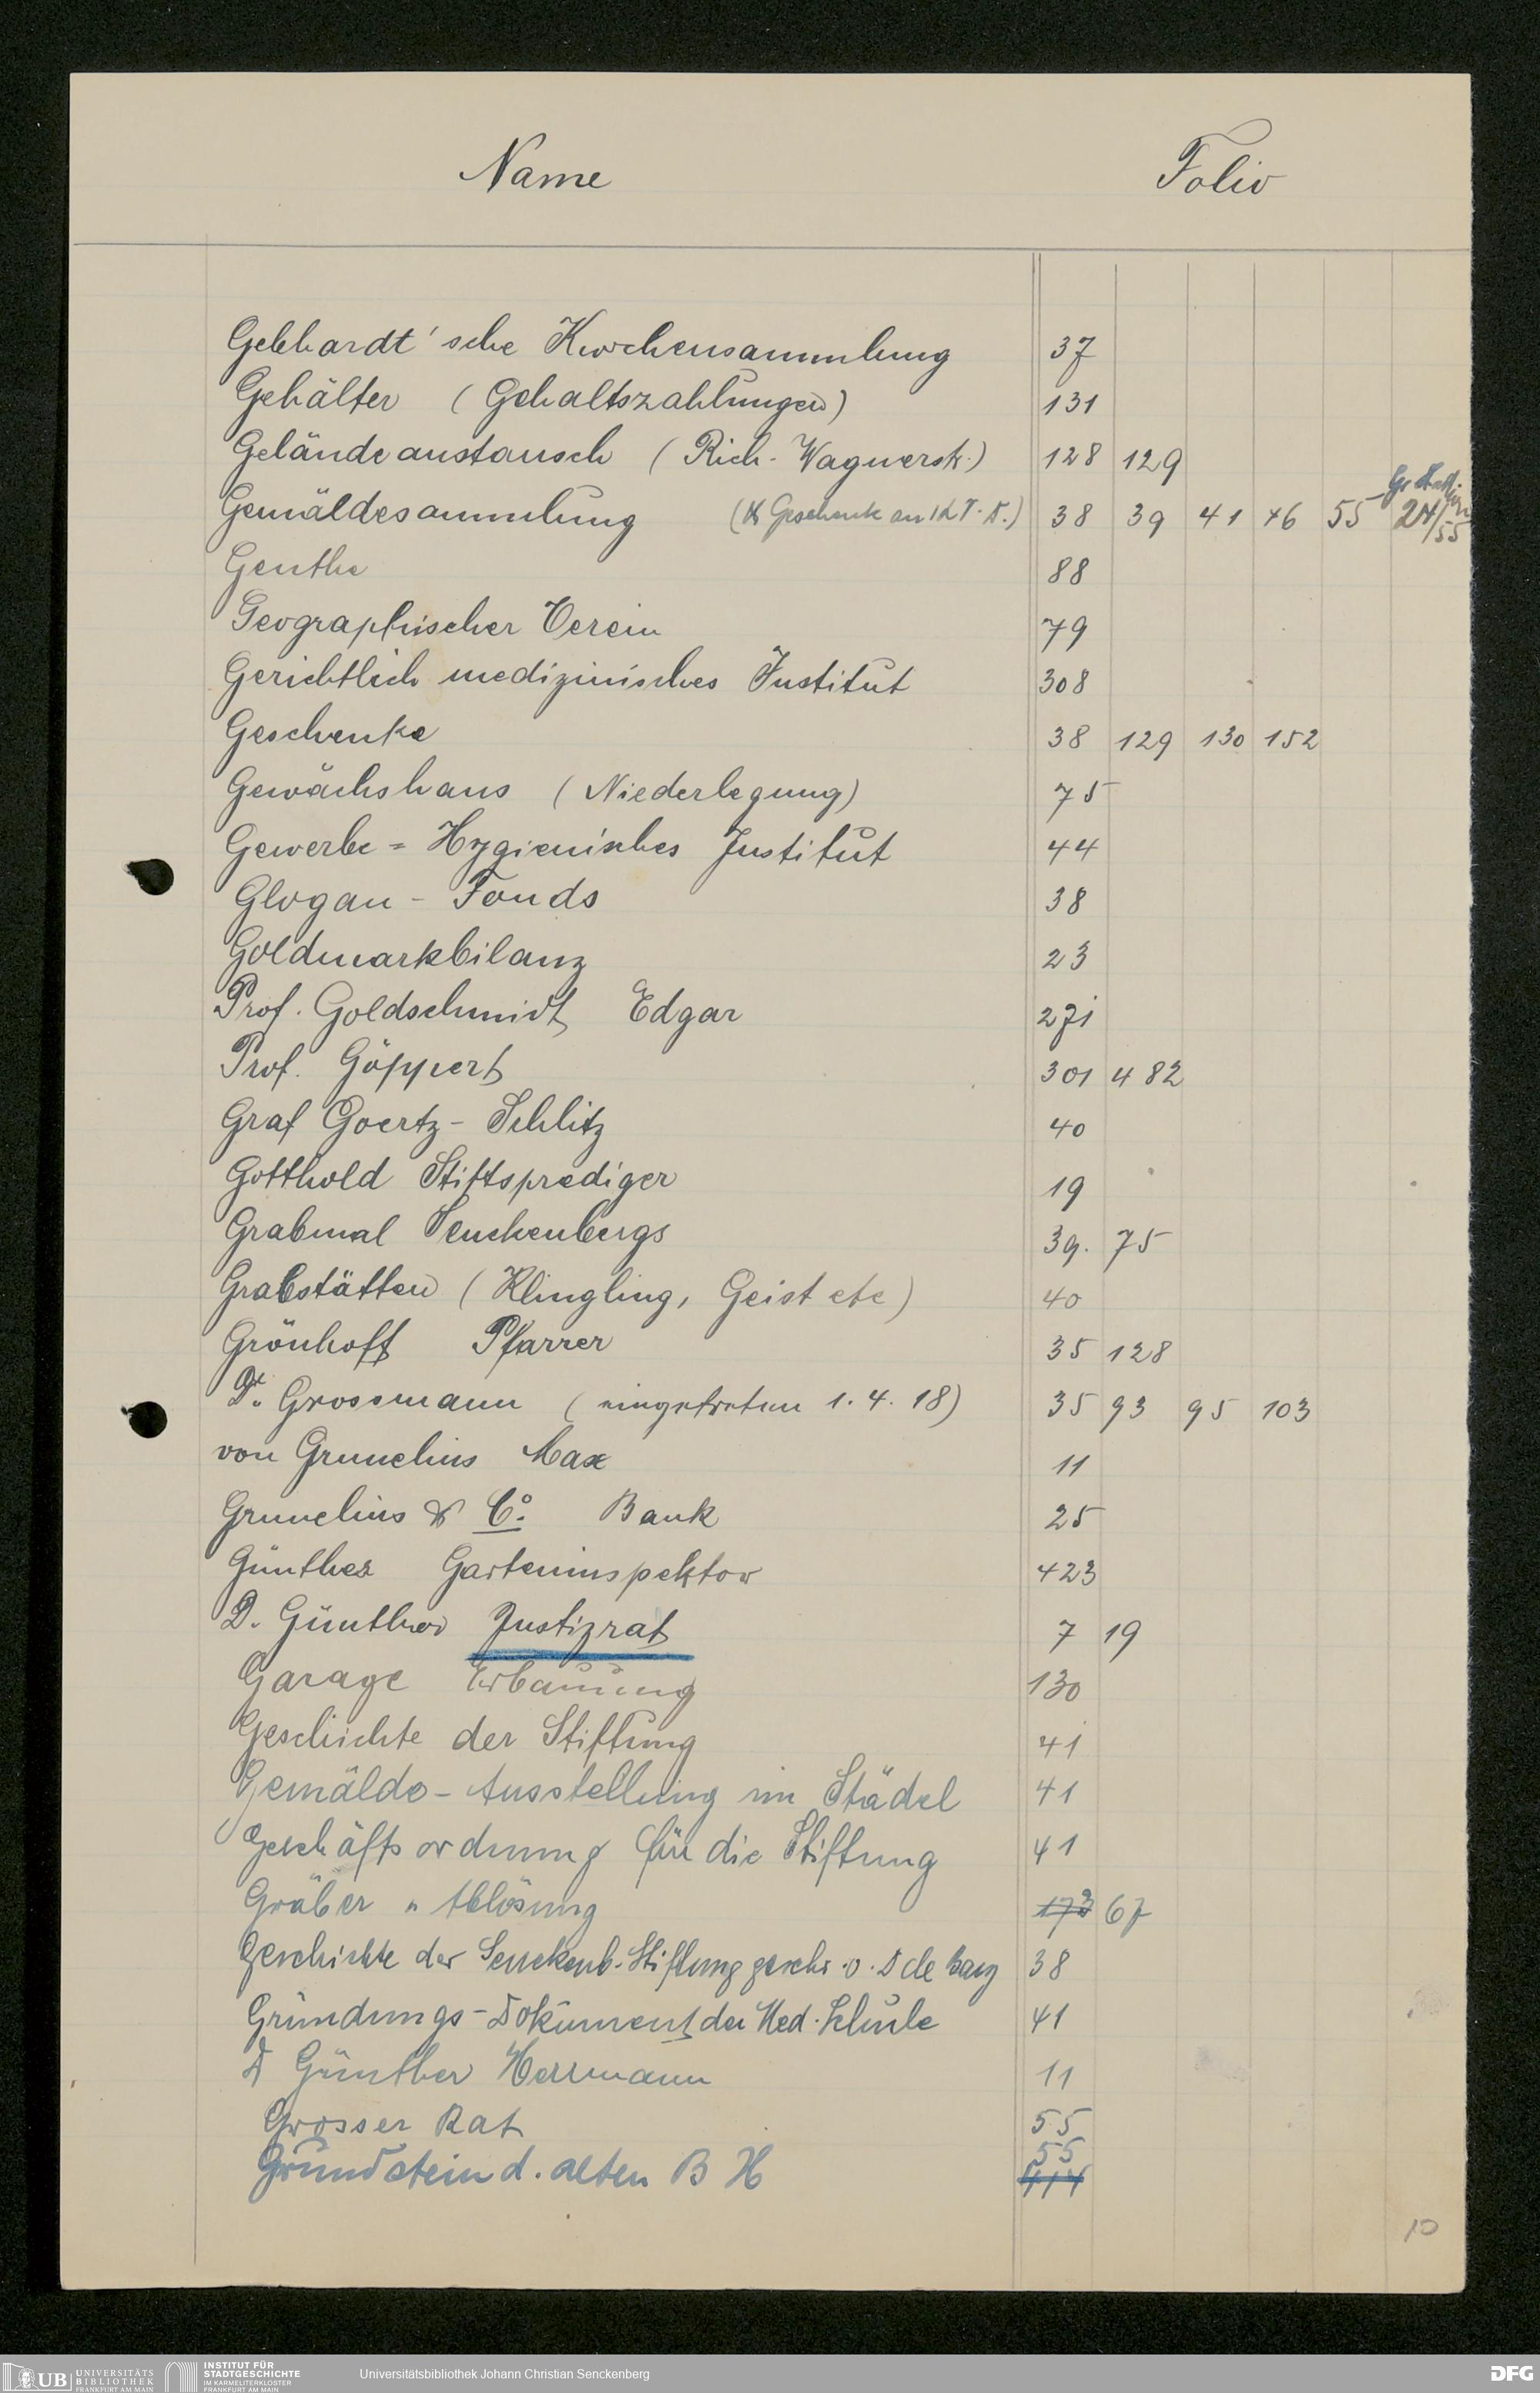 Name Folio
Gebhardt'sche Knochensammlung 37
Gehälter (Gehaltszahlungen) 131
Geländeaustausch (Rich. Wagnerstr.) 128 129
Gemäldesammlung (Geschenk an 38 39 41 46 55 24/55
Genthe 88
Geographischer Verein 79
Gerichtlich medizinisches Institut 308
Geschenke 38 129 130 152
Gewächshaus (Niederlegung) 75
Gewerbe = Hygienisches Institut 44
Glogau - Fonds 38
Goldmarkbilanz 23
Prof. Goldschmidt Edgar 271
Prof. Göppert 301 482
Graf Goertz - Schlitz 40
Gotthold Stiftsprediger 19
Grabmal Senckenbergs 39. 75
Grabstätten (Klingling, Geist etc) 40
Grönhoff Pfarrer 35 128
Dr. Grossmann (eingetreten 1. 4. 18) 35 93 95 103
von Grunelius Max 11
Grunelius & Co. Bank 25
Günther Garteninspektor 423
D. Günther Justizrat 7 19
Garage Erbauung 130
Geschichte der Stiftung 41
Gemälde - Ausstellung im Städel 41
Geschäftsordnung für die Stiftung 41
Gräber " Ablösung 173 67
Geschichte der Senckenb. Stiftung geschr. v. D de Bary 38
Gründungs - Dokument der Med. Schule 41
D Günther Herrmann 11
Grosser Rat 55
Grundstein d. alten B H 55
414
10
UB UNIVERSITÄTS
BIBLIOTHEK
FRANKFURT AM MAIN
INSTITUT FÜR
STADTGESCHICHTE
IM KARMELITERKLOSTER
FRANKFURT AM MAIN
Universitätsbibliothek Johann Christian Senckenberg
DFG